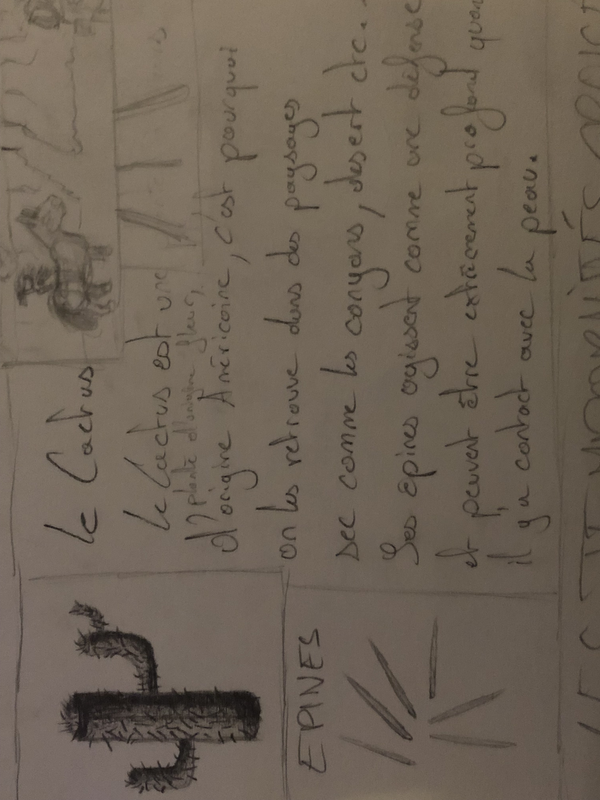 Le Cactus
le Cactus est une
plante d'origine fleur,
d'origine Américaine, c'est pourquoi
on les retrouve dans des paysages
sec comme les canyons, désert etc..
Ses épines agissent comme une défense
et peuvent être extrêmement profond quan
il y'a contact avec la peau.
EPINES